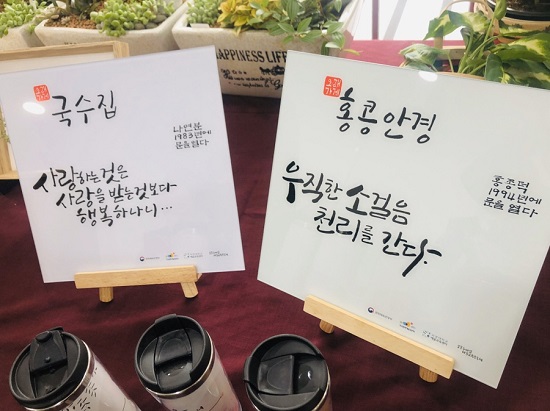 HAPPINESS LIFE
국수집
나연분
1983년에
문을 열다
사랑하는것은
사랑을 받는것보다
행복하나니...
홍콩안경
홍종덕
1994년에
문을 열다
우직한 소걸음
천리를 간다.